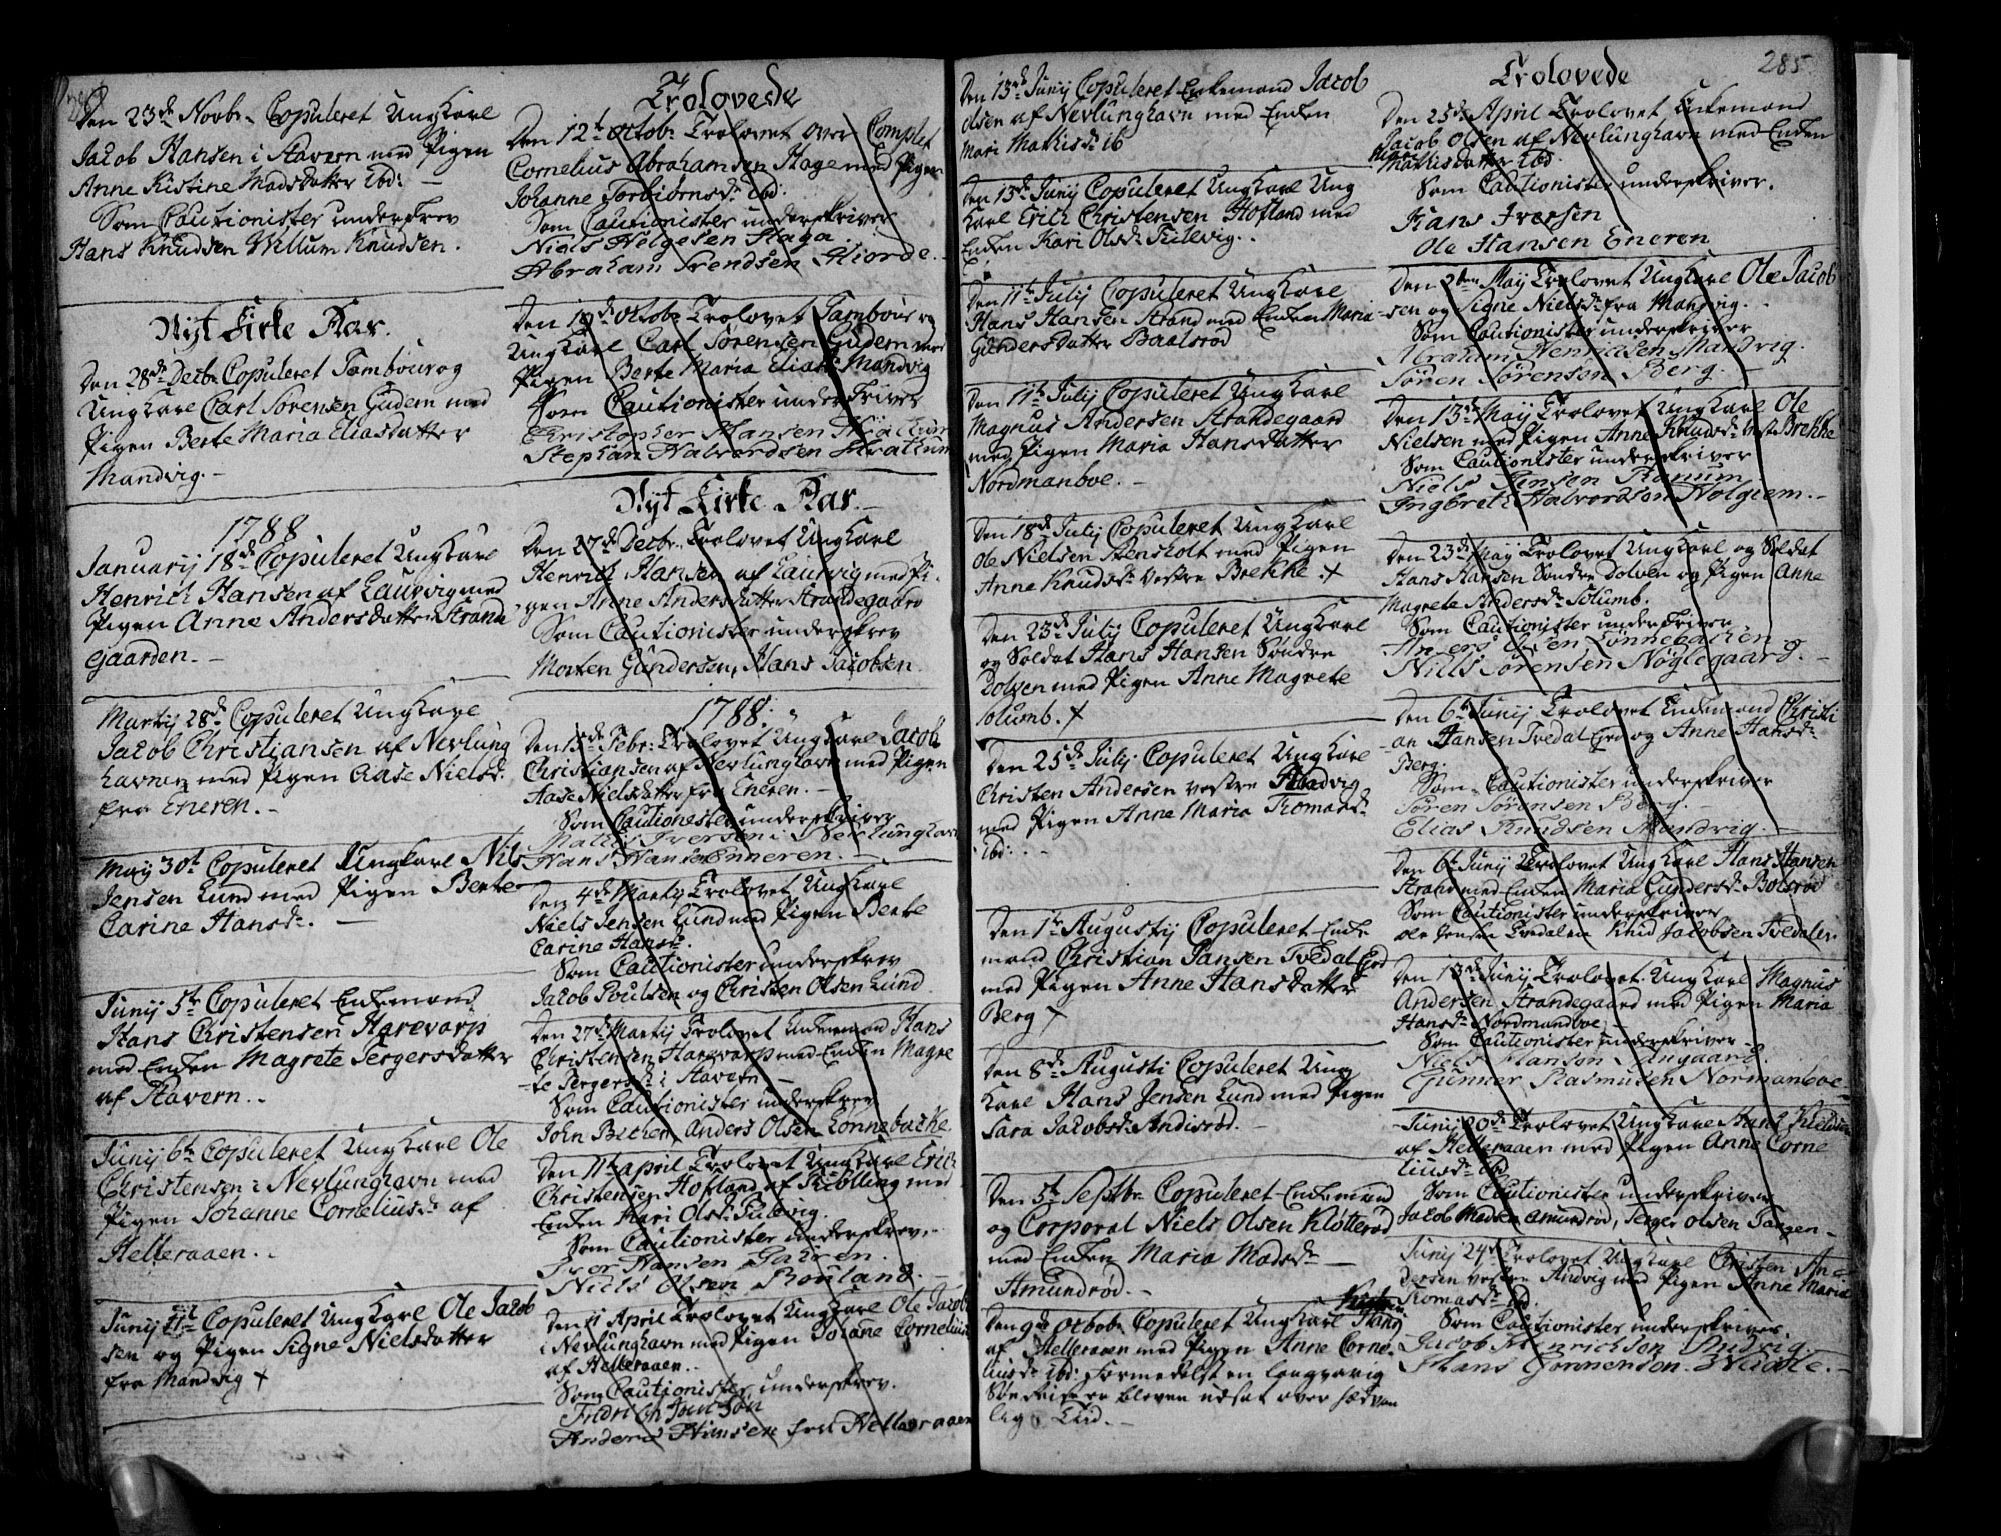 Den 23de Novbr. Copuleret Ungkarl
Jacob Hansen i Stavern med Pigen
Anne Kistine Madsdatter ibd:
Som Cautionister underskrev
Hans Knudsen Willum Knudsen.
Nyt Kirke Aar.
Den 28de Decbr. Copuleret Tambour og
Ungkarl Carl Sørensen Gudem med
Pigen Berte Maria Eliasdatter
Mandvig.
1788
Januarij 18de Copuleret Ungkarl
Henrich Hansen af Laurvig med
Pigen Anne Andersdatter Strand
gaarden.
Martij 28de Copuleret Ungkarl
Jacob Christiansen af Nevlung
havnen med Pigen Aase Nielsd:
fra Eneren.
May 30t Copuleret Ungkarl Nils
Jensen Lund med Pigen Berte
Carine Hansd:
Junij 5te Copuleret Enkemand
Hans Christensen Harevarp
med Enken Magrete Tergersdatter
af Stavern.
Junij 6te Copuleret Ungkarl Ole
Christensen i Nevlunghavn med
Pigen Johanne Corneliusd: af
Helleraaen.
Junij 11te Copuleret Ungkarl Ole Jacob
sen og Pigen Signe Nielsdatter
fra Mandvig +
Trolovede
Den 12t Octobr. Trolovet over Complet
Cornelius Abrahamsen Hage med Pigen
Johanne Torbiørnsd: ibd:
Som Cautionister underskriver
Niels Helgesen Haga
Abraham Trendsen Hiorde.
Den 19de Octobr Trolovet Tambour og
Ungkarl Carl Sørensen Gudem med
Pigen Berte Maria Eliasd: Mandvig
Som Cautionister underskriver
Christopher Hansen
Stephan Halvordsen
Nyt Kirke Aar.
Den 27de Decbr. Trolovet Ungkarl
Henrich Hansen af Laurvig med Pi-
gen Anne Andersdatter Strandegaard
Som Cautionister underskrev
Morten Gundersen, Hans Jacobsen
1788:
Den 13de Febr: Trolovet Ungkarl Jacob
Christiansen af Nevlunghavn med Pigen
Aase Nielsdatter fra Eneren.
Som Cautionister underskriver
Mathis Iversen i Nevlunghavn
Hans Hansen Enneren.
Den 4de Martij Trolovet Ungkarl
Niels Jensen Lund med Pigen Berte
Carine Hansd:
Som Cautionister underskrev
Jacob Poulsen og Christen Olsen Lund
Den 27de Martij Trolovet Enkemand Hans
Christensen Harevarp med Enken Magre
te Tergersd: i Stavern
Som Cautionister underskrev
John Becher, Anders Olsen Lønnebacke
Den 11te april Trolovet Ungkarl Erich
Christensen Hofland af Kiølling med
Enken Kari Olsd: Fulevig.
Som Cautionister underskrev.
Iver Hansen
Niels Olsen Rouland.
Den 11 April Trolovet Ungkarl Ole Jacob
i Nevlunghavn med Pigen Johane Cornelius
af Helleraaen.
Som Cautionister underskrev.
Fridrich
Anders Himsen fra Helleraaen
Den 13de Junij Copuleret Enkemand Jacob
Olsen af Nevlunghavn med Enken
Mari Mathisd: ib
Den 13de Junij Copuleret Ungkarl Ung
karl Erich Christensen Hofland med
Enken Kari Olsd: Fulevig.
Den 11te Julij Copuleret Ungkarl
Hans Hansen Strand med Enken Maria
Gundersdatter Baalsrød
Den 11te Julij Copuleret Ungkarl
Magnus Andersen Strandegaard
med Pigen Maria Hansdatter
Nordmanboe.
Den 18de Julij Copuleret Ungkarl
Ole Nielsen Stensholt med Pigen
Anne Knudsd: Vestre Brekke +
Den 23de Julij Copuleret Ungkarl
og Soldat Hans Hansen Søndre
Dolven med Pigen Anne Magrete
Solumb. +
Den 25de Julij Copuleret Ungkarl
Christen Andersen vestre Andvig
med Pigen Anne Maria Tomasd:
ibd:
Den 1te Augustij Copuleret Enke
mand Christian Hansen Tvedal
med Pigen Anne Hansdatter
Berg +
Den 8de Augusti Copuleret Ung
karl Hans Jensen Lund med Pigen
Sara Jacobsd: Andisrød.
Den 5te Septbr. Copuleret Enkemand
og Corporal Niels Olsen Klotterød
med Enken Maria Madsd:
Amundrød.
Den 9de Octobr. Copuleret Ungkarl Hans
af Helleraaen med Pigen Anne Corne-
liusd: ibd: formedelst en langvarig
bleven udsat over sædvan
lig Tid.
285
Trolovede
Den 25de April Trolovet Enkemand
Jacob Olsen af Nevlunghavn med Enken
Mathisdatter ibd.
Som Cautionister underskriver.
Hans Iversen
Ole Hansen Eneren
Den 2den May Trolovet Ungkarl Ole Jacob
sen og Signe Nielsd: fra Mandvig.
Som Cautionister underskriver
Abraham Henrichsen Mandvig.
Søren Sørensen Berg.
Den 13de May Trolovet Ungkarl Ole
Nielsen med Pigen Anne Knudsd: Vest: Brekke
Som Cautionister underskriver
Niels Jensen Ranum
Ingbreth Halvordsen Nolgiem.
Den 23de May Trolovet Ungkarl og Soldat
Hans Hansen Søndre Dolven og Pigen Anne
Magrete Andersd: Solumb.
Som Cautionister underskriver
Anders Olsen Lønnebachen
Niels Sørensen Nøglegaard.
Den 6te Junij Trolovet Enkemand Christi
an Hansen Tvedal og Anne Hansd:
Berg.
Som Cautionister underskriver
Søren Sørensen Berg.
Elias Knudsen Mandvig.
Den 6te Junij Trolovet Ungkarl Hans Hansen
Strand med Enken Maria Gundersd: Bolsrød
Som Cautionister underskriver
Ole Jensen Tvedalen Knud Jacobsen Tvedalen
Den 13de Junij Trolovet Ungkarl Magnus
Andersen Strandegaard med Pigen Maria
Hansd: Nordmandboe
Som Cautionister underskriver
Niels Hansen
Gunner Rasmusen Normanboe
Junij 20de Trolovet Ungkarl Hans
af Helleraaen med Pigen Anne Corne
liusd: ibd
Som Cautionister underskriver
Jacob Madsen Amundrød, Terger Olsen Tangen
Junij 24de Trolovet Ungkarl Christen An-
dersen vestre Andvig med Pigen Anne Maria
Tomasd: ibd.
Som Cautionister underskriver.
Jacob Henrichsen Andvig.
Hans Gonnersen